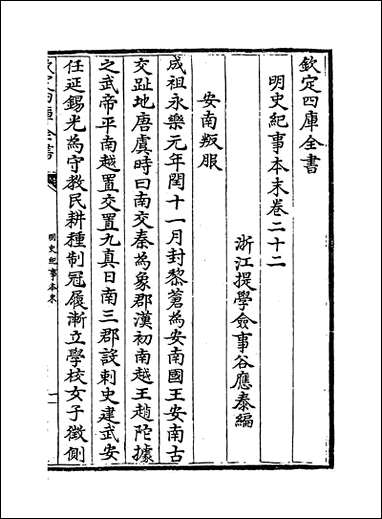 欽定四庫全書
明史紀事本末卷二十二
浙江提學僉事谷應泰編
安南叛服
成祖永樂元年閏十一月封黎蒼為安南國王安南古
交趾地唐虞時曰南交秦為象郡漢初南越王趙陀據
之武帝平南越置交置九真日南三郡設刺史建武安
任延錫光為守教民耕種制冠履漸立學校女子徵側
欽定四庫全書
明史紀事本末
一